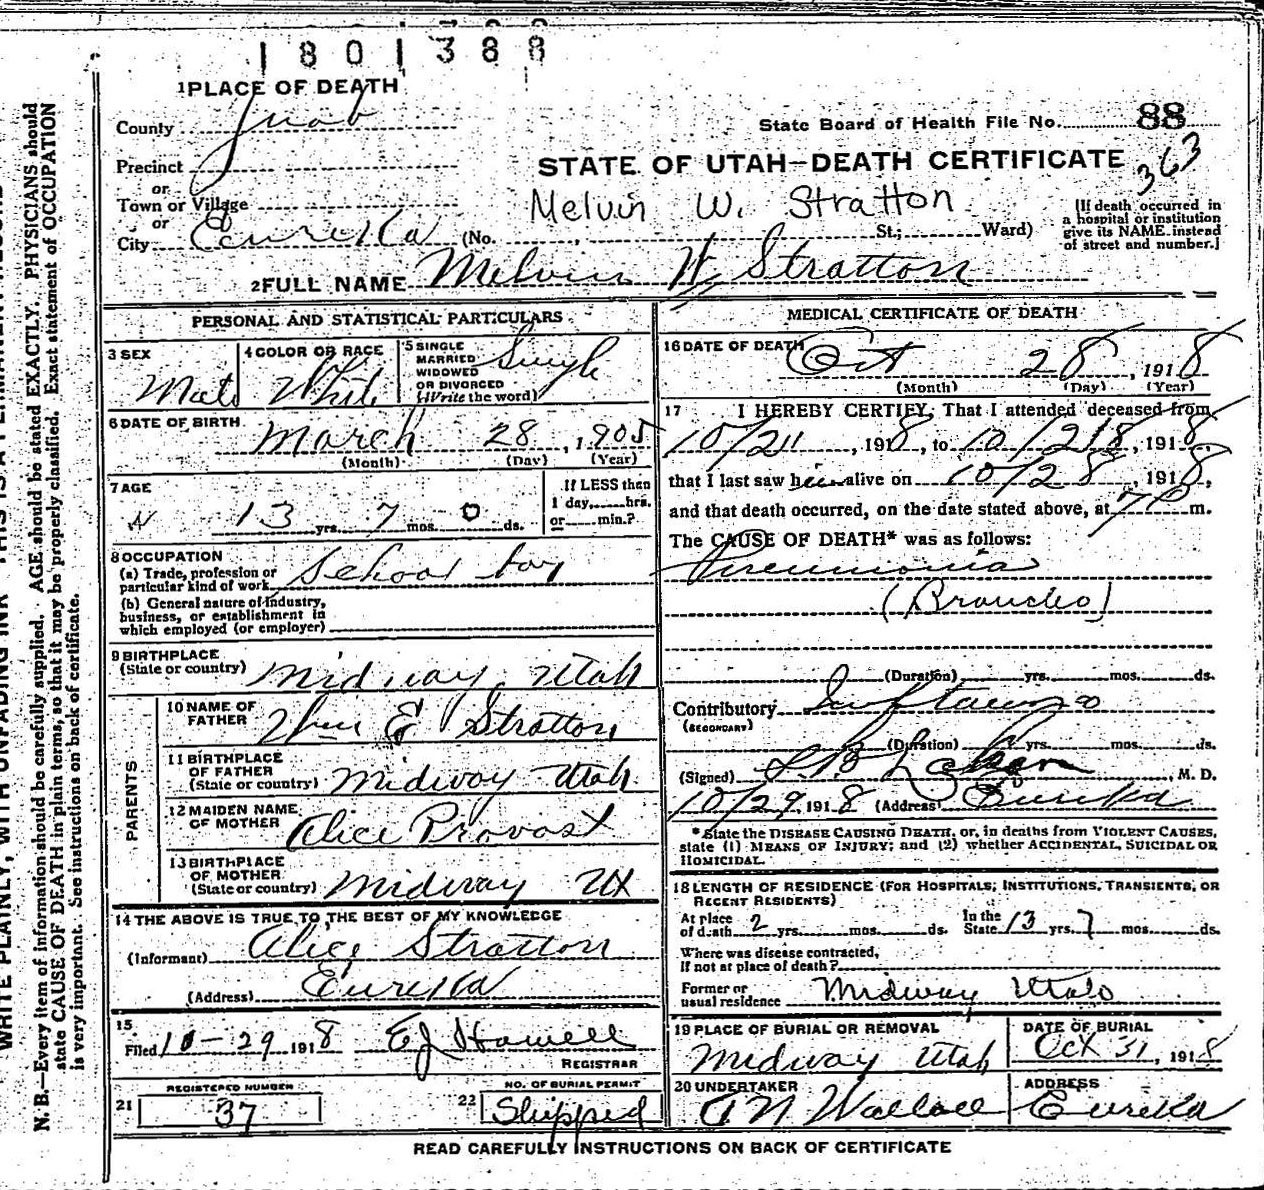 1801388
1 PLACE OF DEATH
County Juab
State Board of Health File No. 88
Precinct
STATE OF UTAH—DEATH CERTIFICATE
363
or
Town or Village
Melvin W. Stratton
or
City Eureka (No. , St.; Ward)
[If death occurred in
a hospital or institution
give its NAME instead
of street and number.]
2 FULL NAME Melvin W Stratton
PERSONAL AND STATISTICAL PARTICULARS
3 SEX Male
4 COLOR OR RACE White
5 SINGLE
MARRIED
WIDOWED
OR DIVORCED
(Write the word)
Single
6 DATE OF BIRTH March 28, 1905
(Month) (Day) (Year)
7 AGE
13 yrs. 7 mos. 0 ds.
If LESS than
1 day, hrs.
or min.?
8 OCCUPATION
(a) Trade, profession or
particular kind of work School boy
(b) General nature of industry,
business, or establishment in
which employed (or employer)
9 BIRTHPLACE
(State or country) Midway, Utah
PARENTS
10 NAME OF
FATHER Wm E Stratton
11 BIRTHPLACE
OF FATHER
(State or country) Midway Utah
12 MAIDEN NAME
OF MOTHER Alice Provost
13 BIRTHPLACE
OF MOTHER
(State or country) Midway Ut
14 THE ABOVE IS TRUE TO THE BEST OF MY KNOWLEDGE
(Informant) Alice Stratton
(Address) Eureka
15
Filed 10-29 1918 EJ Howell
REGISTRAR
REGISTERED NUMBER
21 37
NO. OF BURIAL PERMIT
22 Shipped
MEDICAL CERTIFICATE OF DEATH
16 DATE OF DEATH Oct 28, 1918
(Month) (Day) (Year)
17 I HEREBY CERTIFY, That I attended deceased from
, 1918, to 10/28, 1918,
that I last saw him alive on 10/28, 1918,
and that death occurred, on the date stated above, at 7 P m.
The CAUSE OF DEATH* was as follows:
Pneumonia
(Broncho)
(Duration) yrs. mos. ds.
Contributory Influenza
(SECONDARY)
(Duration) yrs. mos. ds.
(Signed) , M. D.
10/29, 1918 (Address) Eureka
*State the DISEASE CAUSING DEATH, or, in deaths from VIOLENT CAUSES,
state (1) MEANS OF INJURY; and (2) whether ACCIDENTAL, SUICIDAL OR
HOMICIDAL.
18 LENGTH OF RESIDENCE (FOR HOSPITALS, INSTITUTIONS, TRANSIENTS, OR
RECENT RESIDENTS)
At place
of death 2 yrs. mos. ds.
In the
State 13 yrs. 7 mos. ds.
Where was disease contracted,
If not at place of death?
Former or
usual residence Midway Utah
19 PLACE OF BURIAL OR REMOVAL
Midway Utah
DATE OF BURIAL
Oct 31, 1918
20 UNDERTAKER
A N Wallace
ADDRESS
Eureka
READ CAREFULLY INSTRUCTIONS ON BACK OF CERTIFICATE
WRITE PLAINLY, WITH UNFADING INK
N. B.—Every item of information should be carefully supplied. AGE should be stated EXACTLY. PHYSICIANS should
state CAUSE OF DEATH in plain terms, so that it may be properly classified. Exact statement of OCCUPATION
is very important. See instructions on back of certificate.